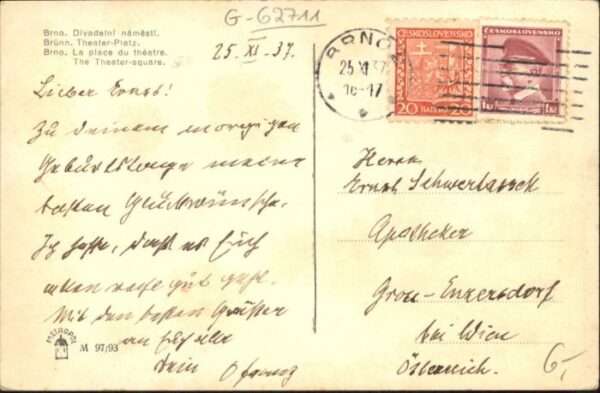 G-62711
Brno. Divadelní náměstí.
Brünn. Theater-Platz.
Brno. La place du théatre.
The Theater-square.
25. XI. 37.
BRNO
25 XI 37
16-17
ČESKOSLOVENSKO
20 HALÉŘŮ 20
ČESKOSLOVENSKO
Lieber Ernst!
Zu deinem morgigen
Geburtstage meine
besten Glückwünsche.
Ich hoffe, daß es Euch
allen recht gut geht.
Mit den besten Grüßen
an Euch alle
Dein
Herrn
Ernst
Apotheker
Gross-Enzersdorf
bei Wien
Österreich.
6,-
METROPOL
M 97/93